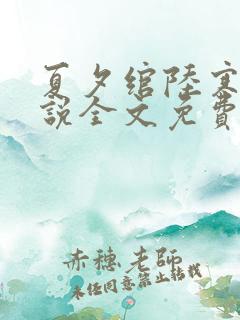 夏夕绾陆寒
说全文免费
赤穗老師
未经同意禁止转载